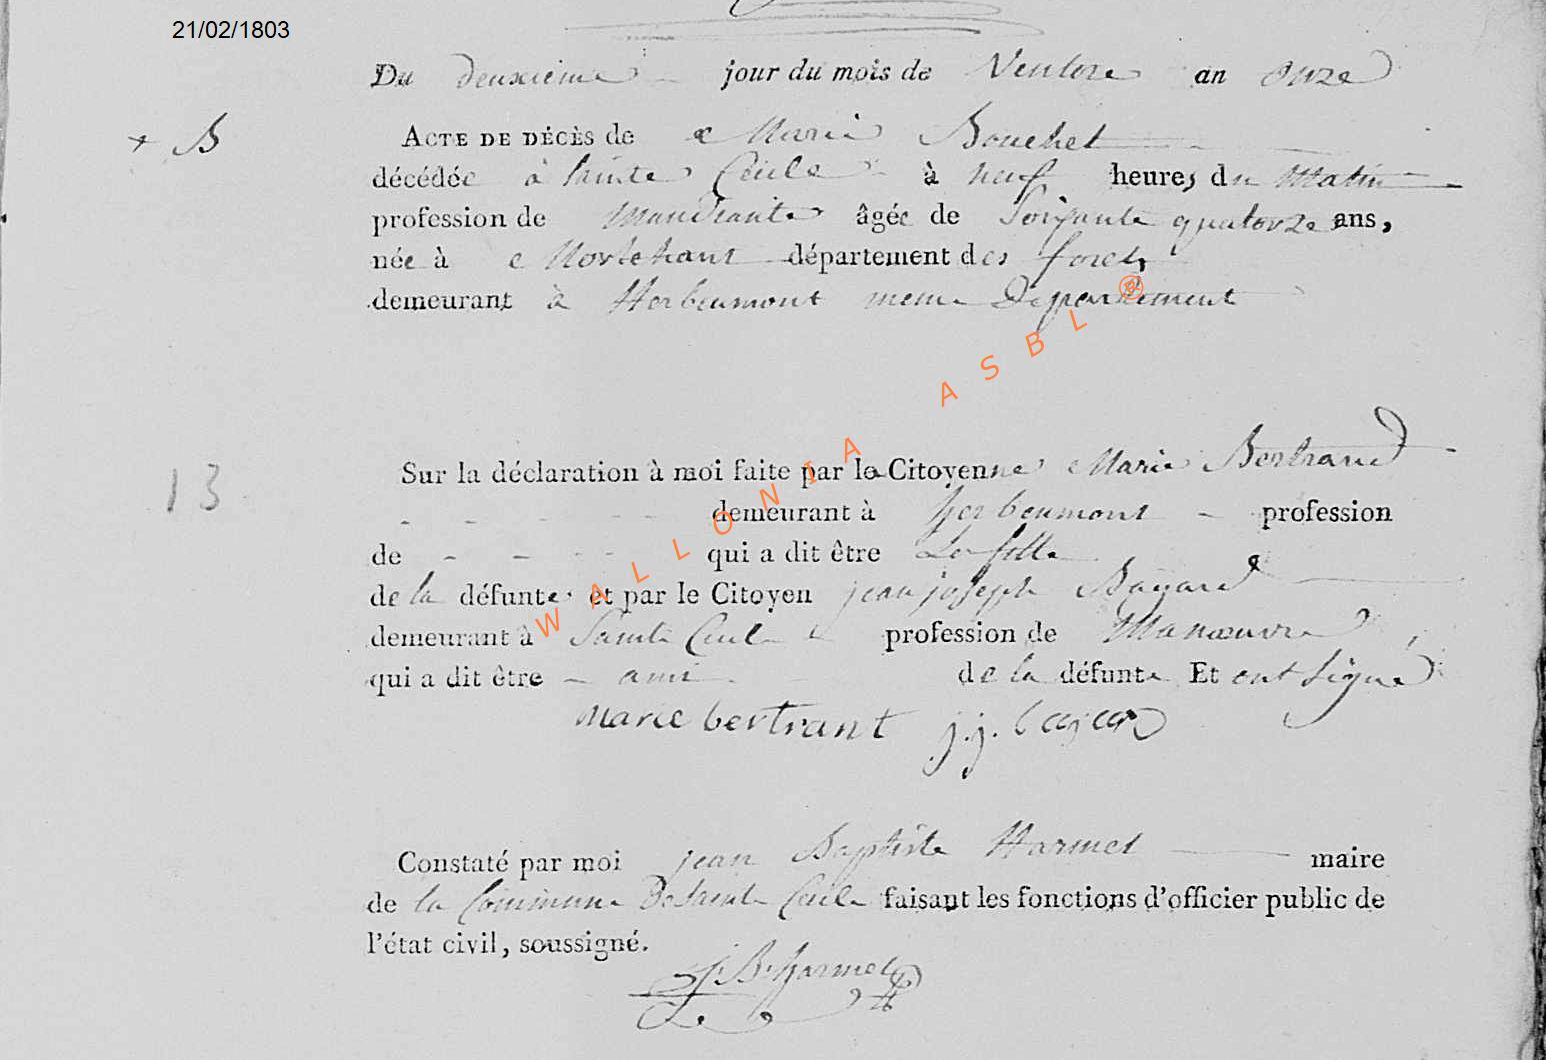 21/02/1803
Du deuxieme jour du mois de Ventose an onze
+ B
ACTE DE DÉCÈS de Marie Bouchet
décédée à Sainte Cecile à neuf heures du Matin
profession de Mandiante âgée de Soixante quatorze ans,
née à Mortehant département des forets
demeurant à Herbeumont meme Departement
WALLONIA ASBL ®
13
Sur la déclaration à moi faite par la Citoyenne Marie Bertrand
demeurant à herbeumont profession
de - - - - qui a dit être La fille
de la défunte et par le Citoyen jean joseph Bayard
demeurant à Sainte Cecile profession de Manœuvre
qui a dit être ami de la défunte Et ont Signé
Marie bertrant j.j. bajar
Constaté par moi jean Baptiste Harmel maire
de la Commune De Sainte Cecile faisant les fonctions d'officier public de
l'état civil, soussigné.
J. B. harmel